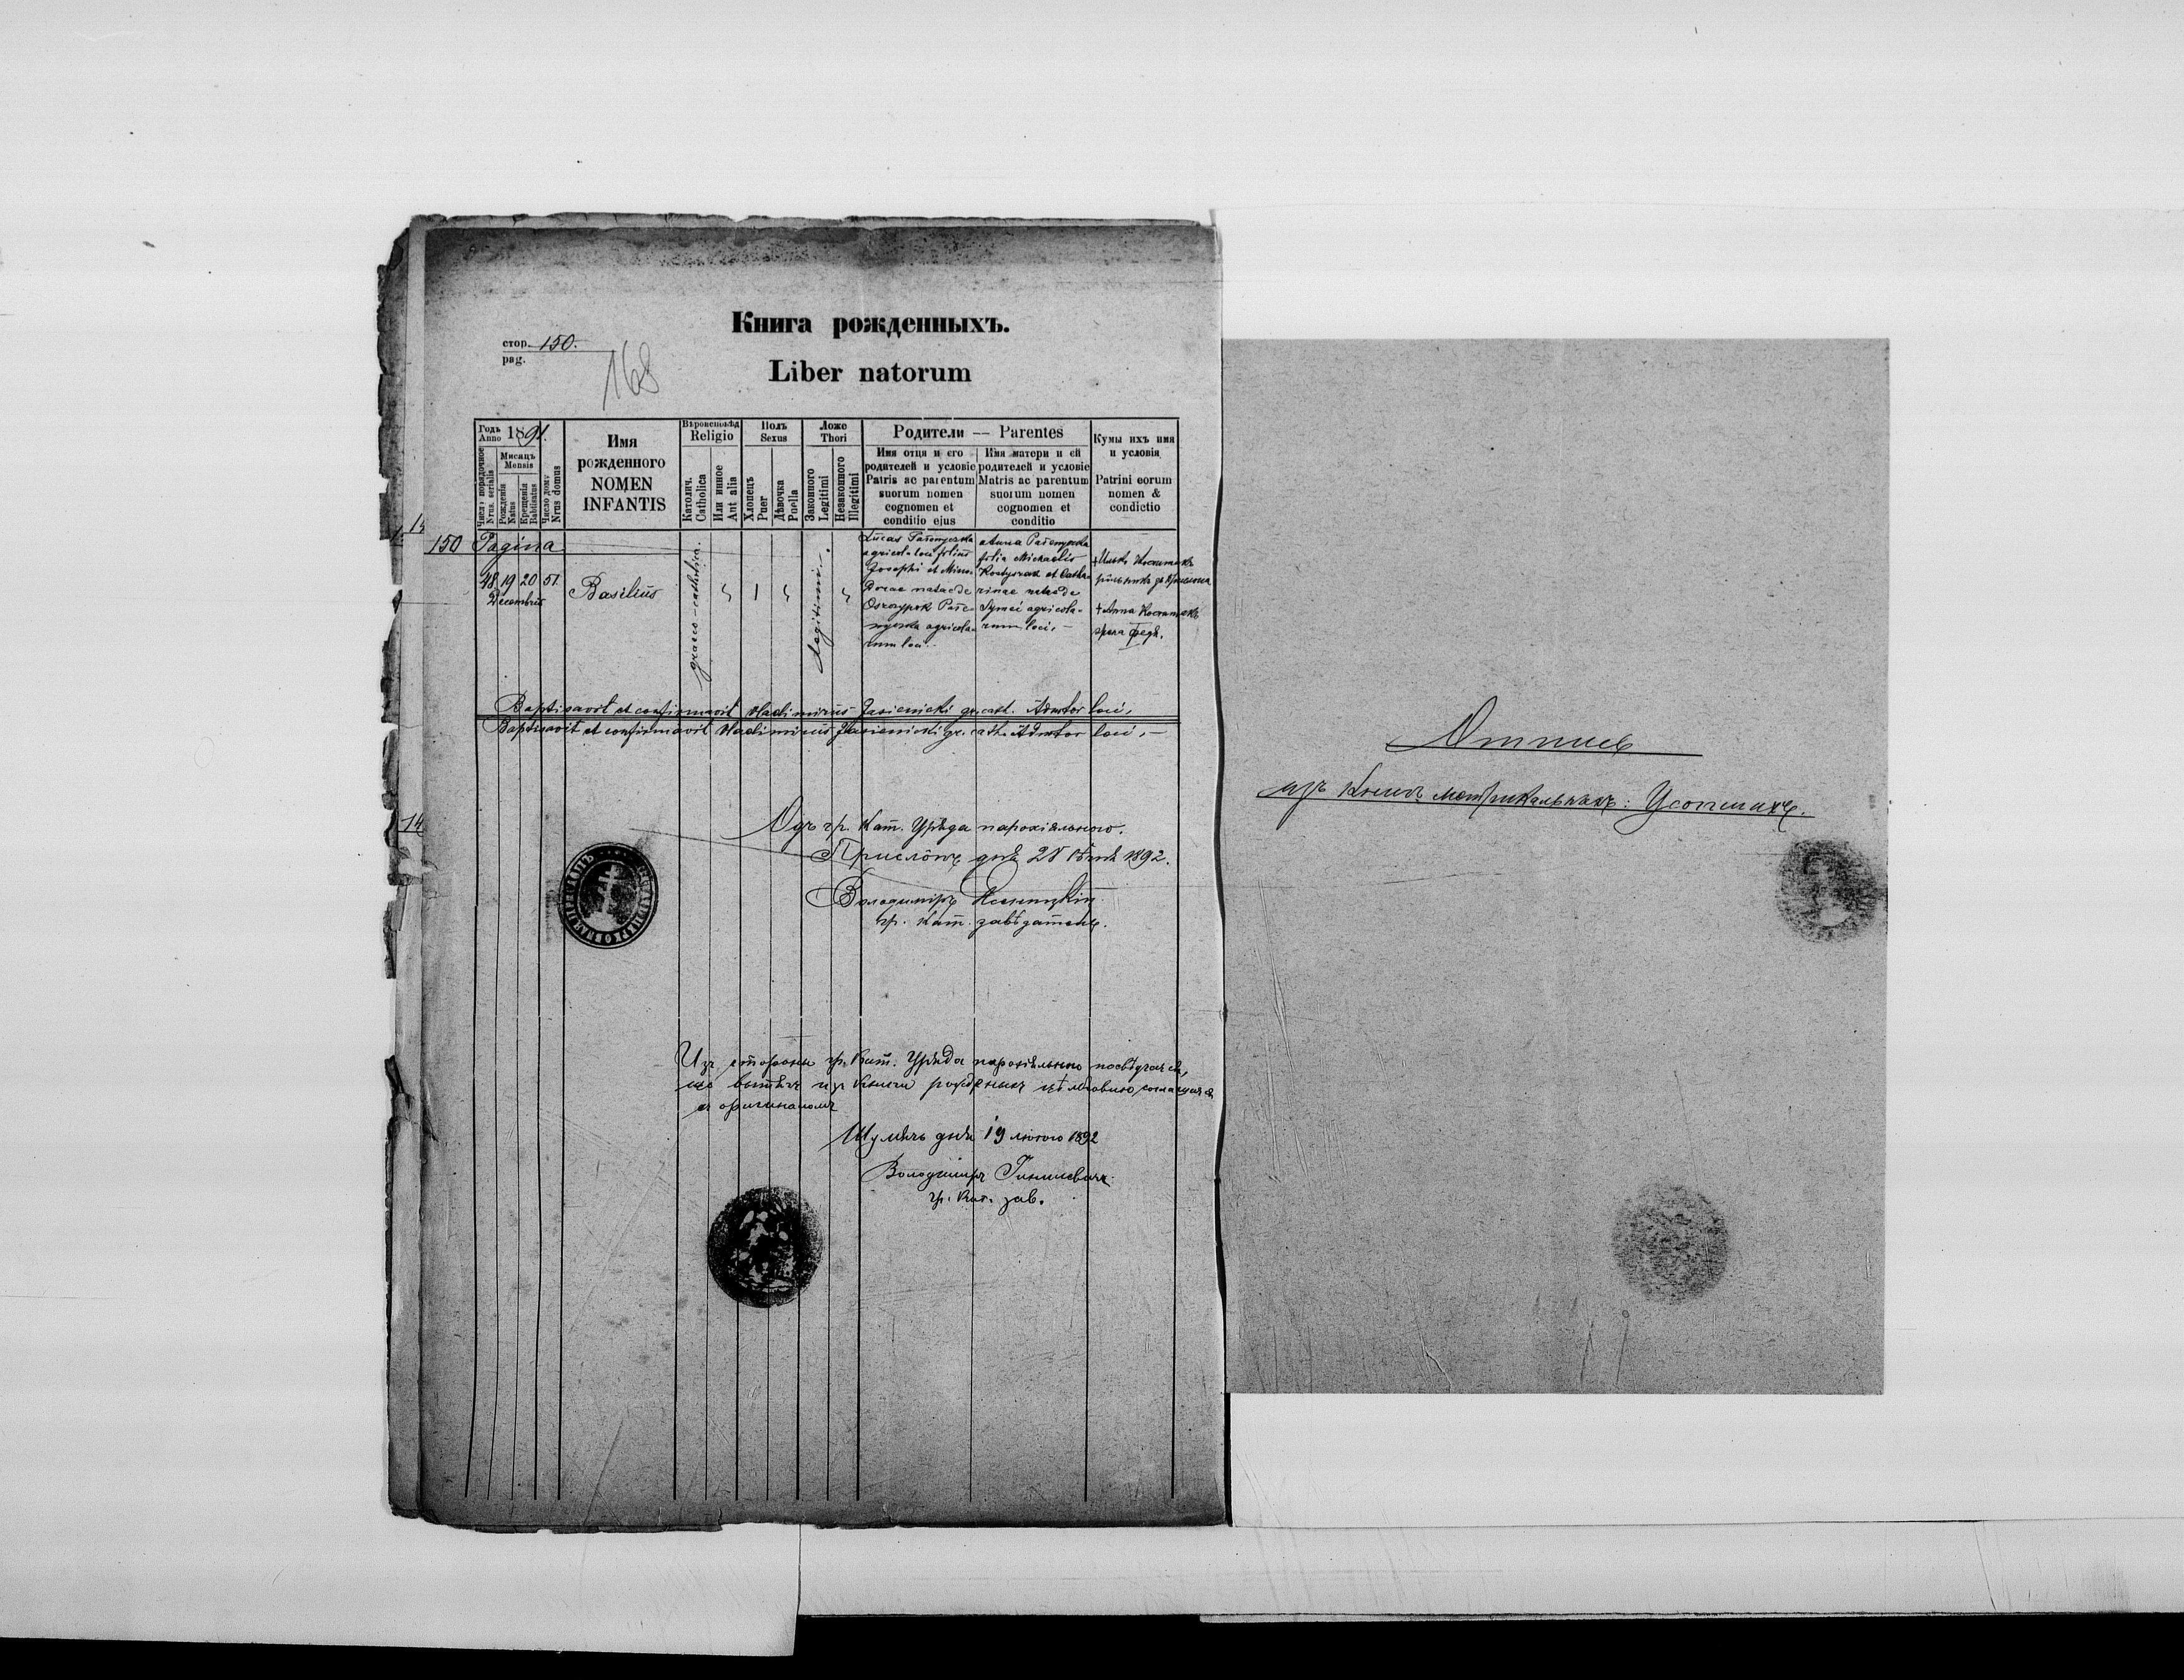 Книга рожденныхъ.
стор. 150.
pag.
168
Liber natorum
Годъ Anno 1891.
Мисяцъ Mensis
Число порядочное Nrus serialis
Рожденія Natus
Крещенія Babtisatus
Число дому Nrus domus
Имя рожденного
NOMEN INFANTIS
Вѣроисповѣд Religio
Католич. Catholica
Или инное Aut alia
Полъ Sexus
Хлопецъ Puer
Дѣвочка Puella
Ложе Thori
Законного Legitimi
Незаконного Illegitimi
Родители — Parentes
Имя отца и его
родителей и условіе
Patris ac parentum
suorum nomen
cognomen et
conditio ejus
Имя матери и ей
родителей и условіе
Matris ac parentum
suorum nomen
cognomen et
conditio
Кумы ихъ имя
и условія
Patrini eorum
nomen &
condictio
150 Pagina
48 19 20 51
Decembris
Basilius
graeco-catholica.
1
Legitimi.
Lucas
agricola loci filius
Josephi et
natae de
agricola-
rum loci.
Anna
filia Michaelis
et Catha-
rinae natae de
agricola-
rum loci, —
+ Анна
жена Федь.
Baptisavit et confirmavit Vladimirus Jasienicki gr. cath. Admtor loci,
Baptisavit et confirmavit Vladimirus Jasienicki gr. cath. Admtor loci, —
14
Одъ гр. Кат. Уряда парохіяльного.
Прислôпъ дня 28 1892.
Володимиръ Ясеницкій
гр. кат. завѣдатель.
Изъ стороны гр. Кат. Уряда парохіяльного посвѣдчаєся,
що вытягъ изъ Книги рожденыхъ
съ оригиналомъ
дня 19 лютого 1892
Володимиръ
гр. Кат. зав.
Отписъ
изъ Книгъ метрикальныхъ: Усопшихъ.